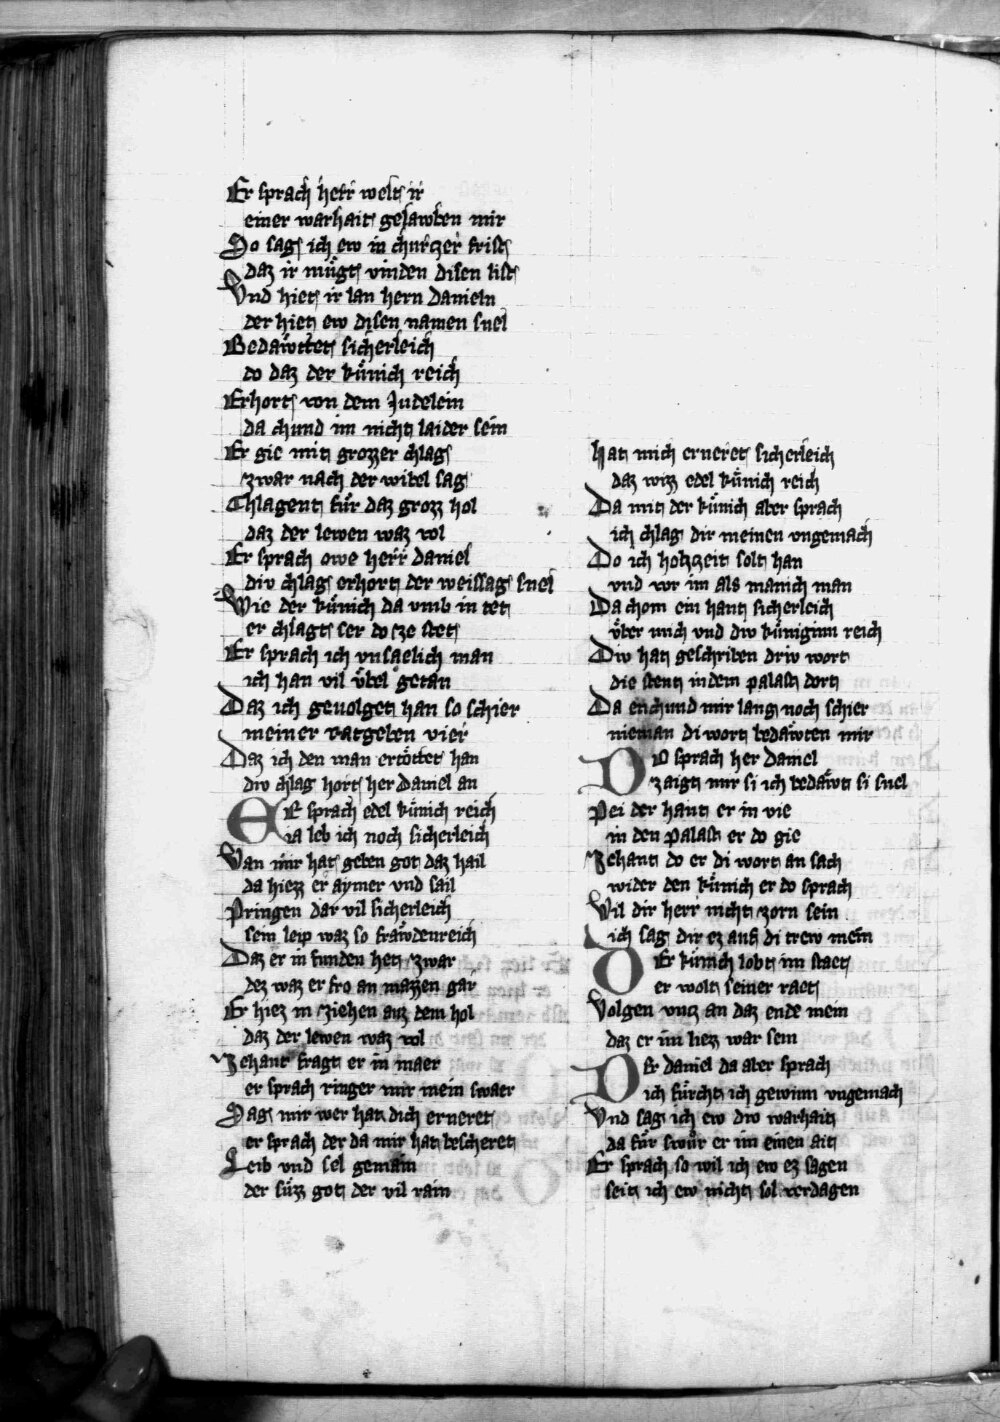 Er sprach herr welt ir
einer warhait gelawben mir
So sag ich ew in churczer frist
daz ir mügt vinden disen list
Vnd hiet ir lan hern danieln
der hiet ew disen namen snel
Bedawttet sicherleich
do daz der künich reich
Erhort von dem Judelein
da chund im nicht laider sein
Er gie mit grozzer chlag
zwar nach der witel sag
Chlagent für daz grozz hol
daz der lewen waz vol
Er sprach owe herr daniel
div chlag erhort der weissag snel
Wie der künich da vmb in tet
er chlagt ser do sze stet
Er sprach ich vnsaelich man
ich han vil übel getan
Daz ich geuolget han so schier
meiner ratgeben vier
Daz ich den man ertöttet han
div chlag hort her Daniel an
Er sprach edel künich reich
ia leb ich noch sicherleich
Wan mir hat geben got daz hail
da hiezz er aymer vnd sail
Pringen dar vil sicherleich
sein leip waz so fräwdenreich
Daz er in funden het zwar
dez waz er fro an mazzen gar
Er hiez in ziehen auz dem hol
daz der lewen waz vol
Zehant fragt er in maer
er sprach ringer mir mein swaer
Sag mir wer hat dich erneret
er sprach der da mir hat bescheret
Leib vnd sel gemain
der süzz got der vil rain
hat mich erneret sicherleich
daz wizz edel künich reich
Da mit der künich aber sprach
ich chlag dir meinen vngemach
Do ich hohczeit solt han
vnd vor im als manich man
Da chom ein hant sicherleich
über mich vnd div küniginn reich
Div hat geschriben driv wort
die stent in dem palast dort
Da enchund mir lang noch schier
nieman di wort bedäwten mir
Do sprach her Daniel
zaigt mir si ich bedäwt si snel
Pei der hant er in vie
in den palast er do gie
Zehant do er di wort an sach
wider den künich er do sprach
Wil dir herr nicht zorn sein
ich sag dir ez auf di trew mein
Der künich lobt im staet
er wolt seiner raet
Volgen vncz an daz ende mein
daz er im liez war sein
Der daniel da aber sprach
ich fürcht ich gewinn vngemach
Vnd sag ich ew div warhait
da für swür er im einen ait
Er sprach so wil ich ew ez sagen
seit ich ew nicht sol verdagen